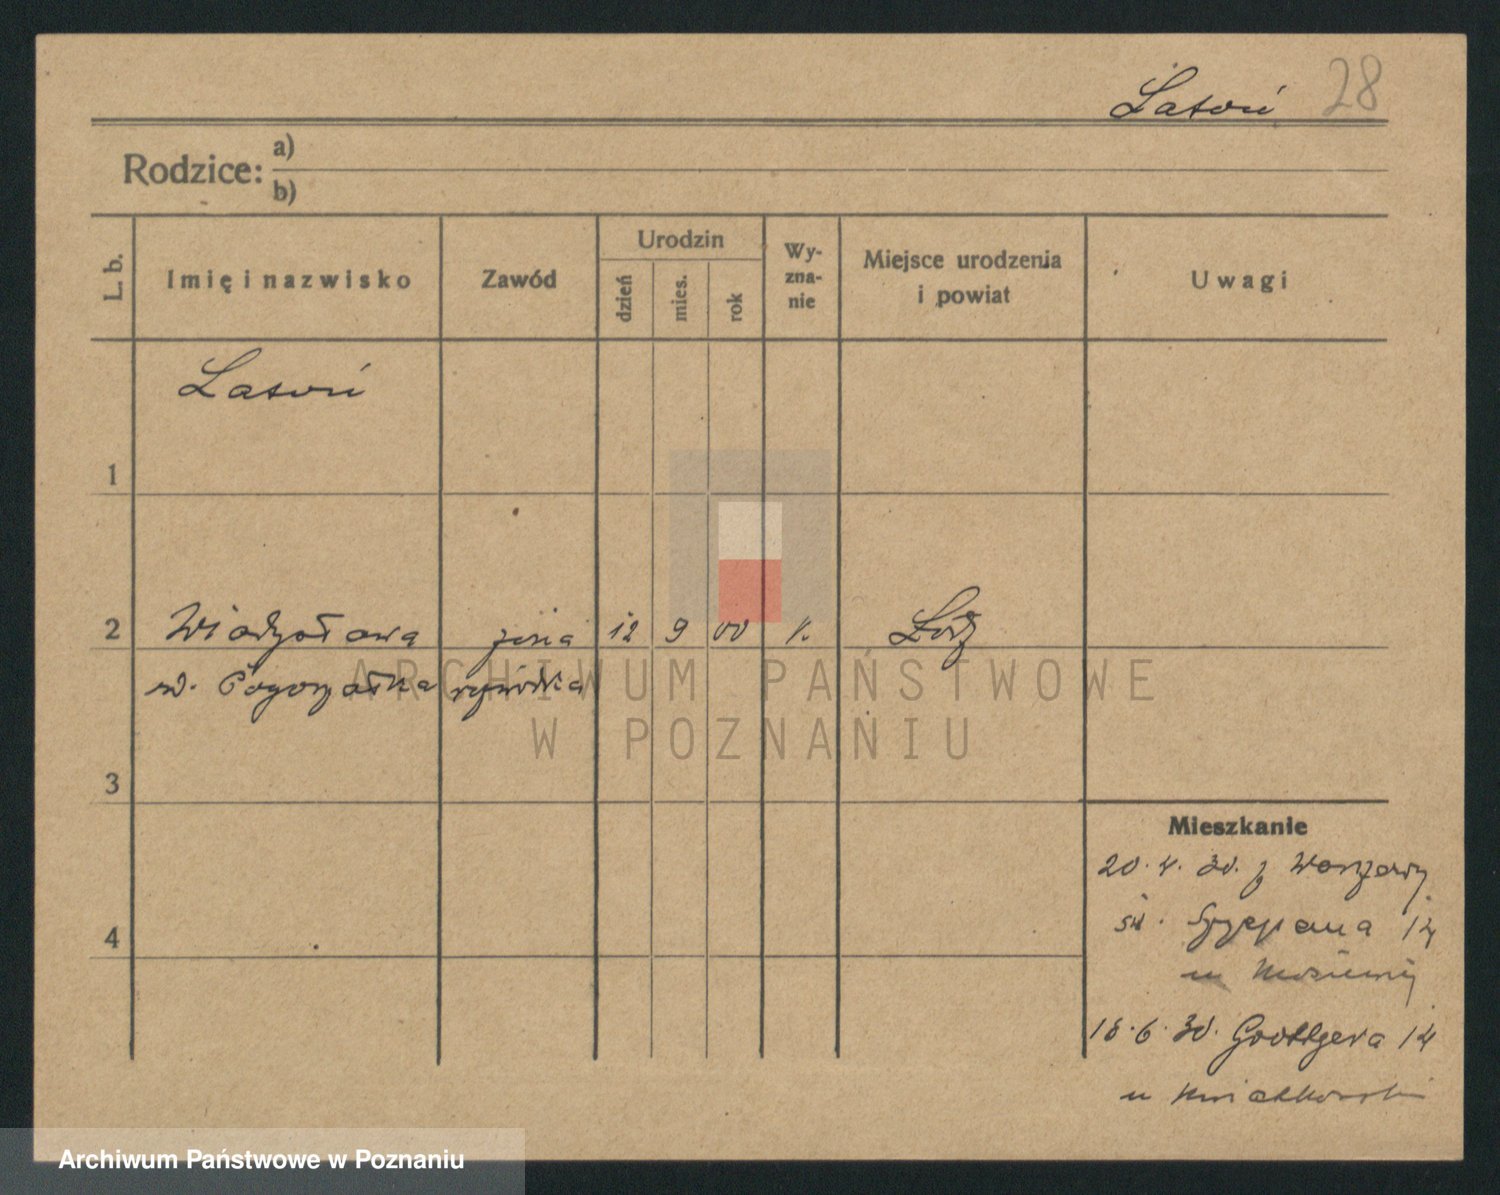 Latoń 28
Rodzice: a)
b)
L. b. Imię i nazwisko Zawód Urodzin dzień mies. rok Wy-zna-nie Miejsce urodzenia i powiat Uwagi
Latoń
1
2 Władysława żona 12 9 00 k. Łódź
ur. Pogorzałka
3
Mieszkanie
20.4.30. z Warszawy
św. Szczepana 14
4
u
18.6.30. Grottgera 14
u Kwiatkowski
ARCHIWUM PAŃSTWOWE
W POZNANIU
Archiwum Państwowe w Poznaniu